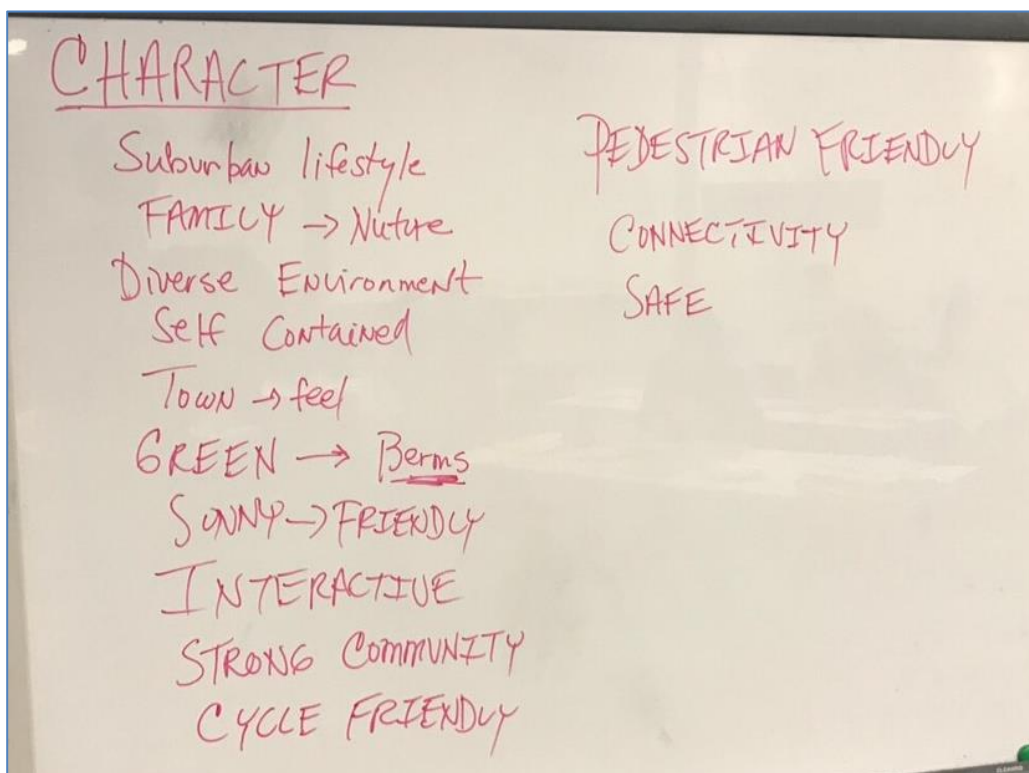 CHARACTER
Suburban lifestyle
FAMILY → Nuture
Diverse Environment
Self Contained
Town → feel
GREEN → Berms
SUNNY → FRIENDLY
INTERACTIVE
STRONG COMMUNITY
CYCLE FRIENDLY
PEDESTRIAN FRIENDLY
CONNECTIVITY
SAFE